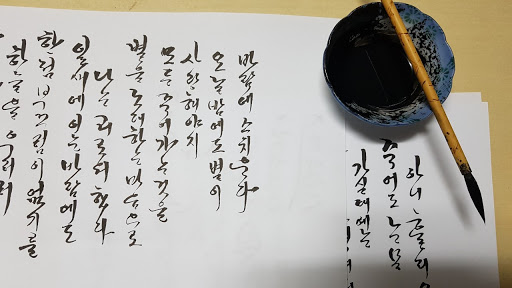 하늘을 우러러
한점 부끄럼이 없기를
잎새에 이는 바람에도
나는 괴로워 했다
별을 노래하는 마음으로
모든 죽어가는것을
사랑해야지
오늘 밤에도 별이
바람에 스치운다
가실때에는
죽어도 눈물
아니 흘리우